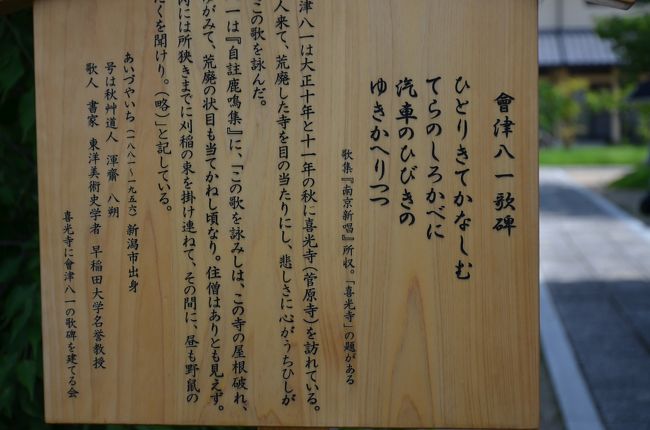 會津八一歌碑
ひとりきてかなしむ
てらのしろかべに
汽車のひびきの
ゆきかへりつつ
歌集『南京新唱』所収。「喜光寺」の題がある
津八一は大正十年と十一年の秋に喜光寺(菅原寺)を訪れている。
人来て、荒廃した寺を目の当たりにし、悲しさに心がうちひしが
この歌を詠んだ。
一は『自註鹿鳴集』に、「この歌を詠みしは、この寺の屋根破れ、
がみて、荒廃の状目も当てかねし頃なり。住僧はありとも見えず。
内には所狭きまでに刈稲の束を掛け連ねて、その間に、昼も野鼠の
くを聞けり。(略)」と記している。
あいづやいち(一八八一〜一九五六)新潟市出身
号は秋艸道人 渾齋 八朔
歌人 書家 東洋美術史学者 早稲田大学名誉教授
喜光寺に會津八一の歌碑を建てる会